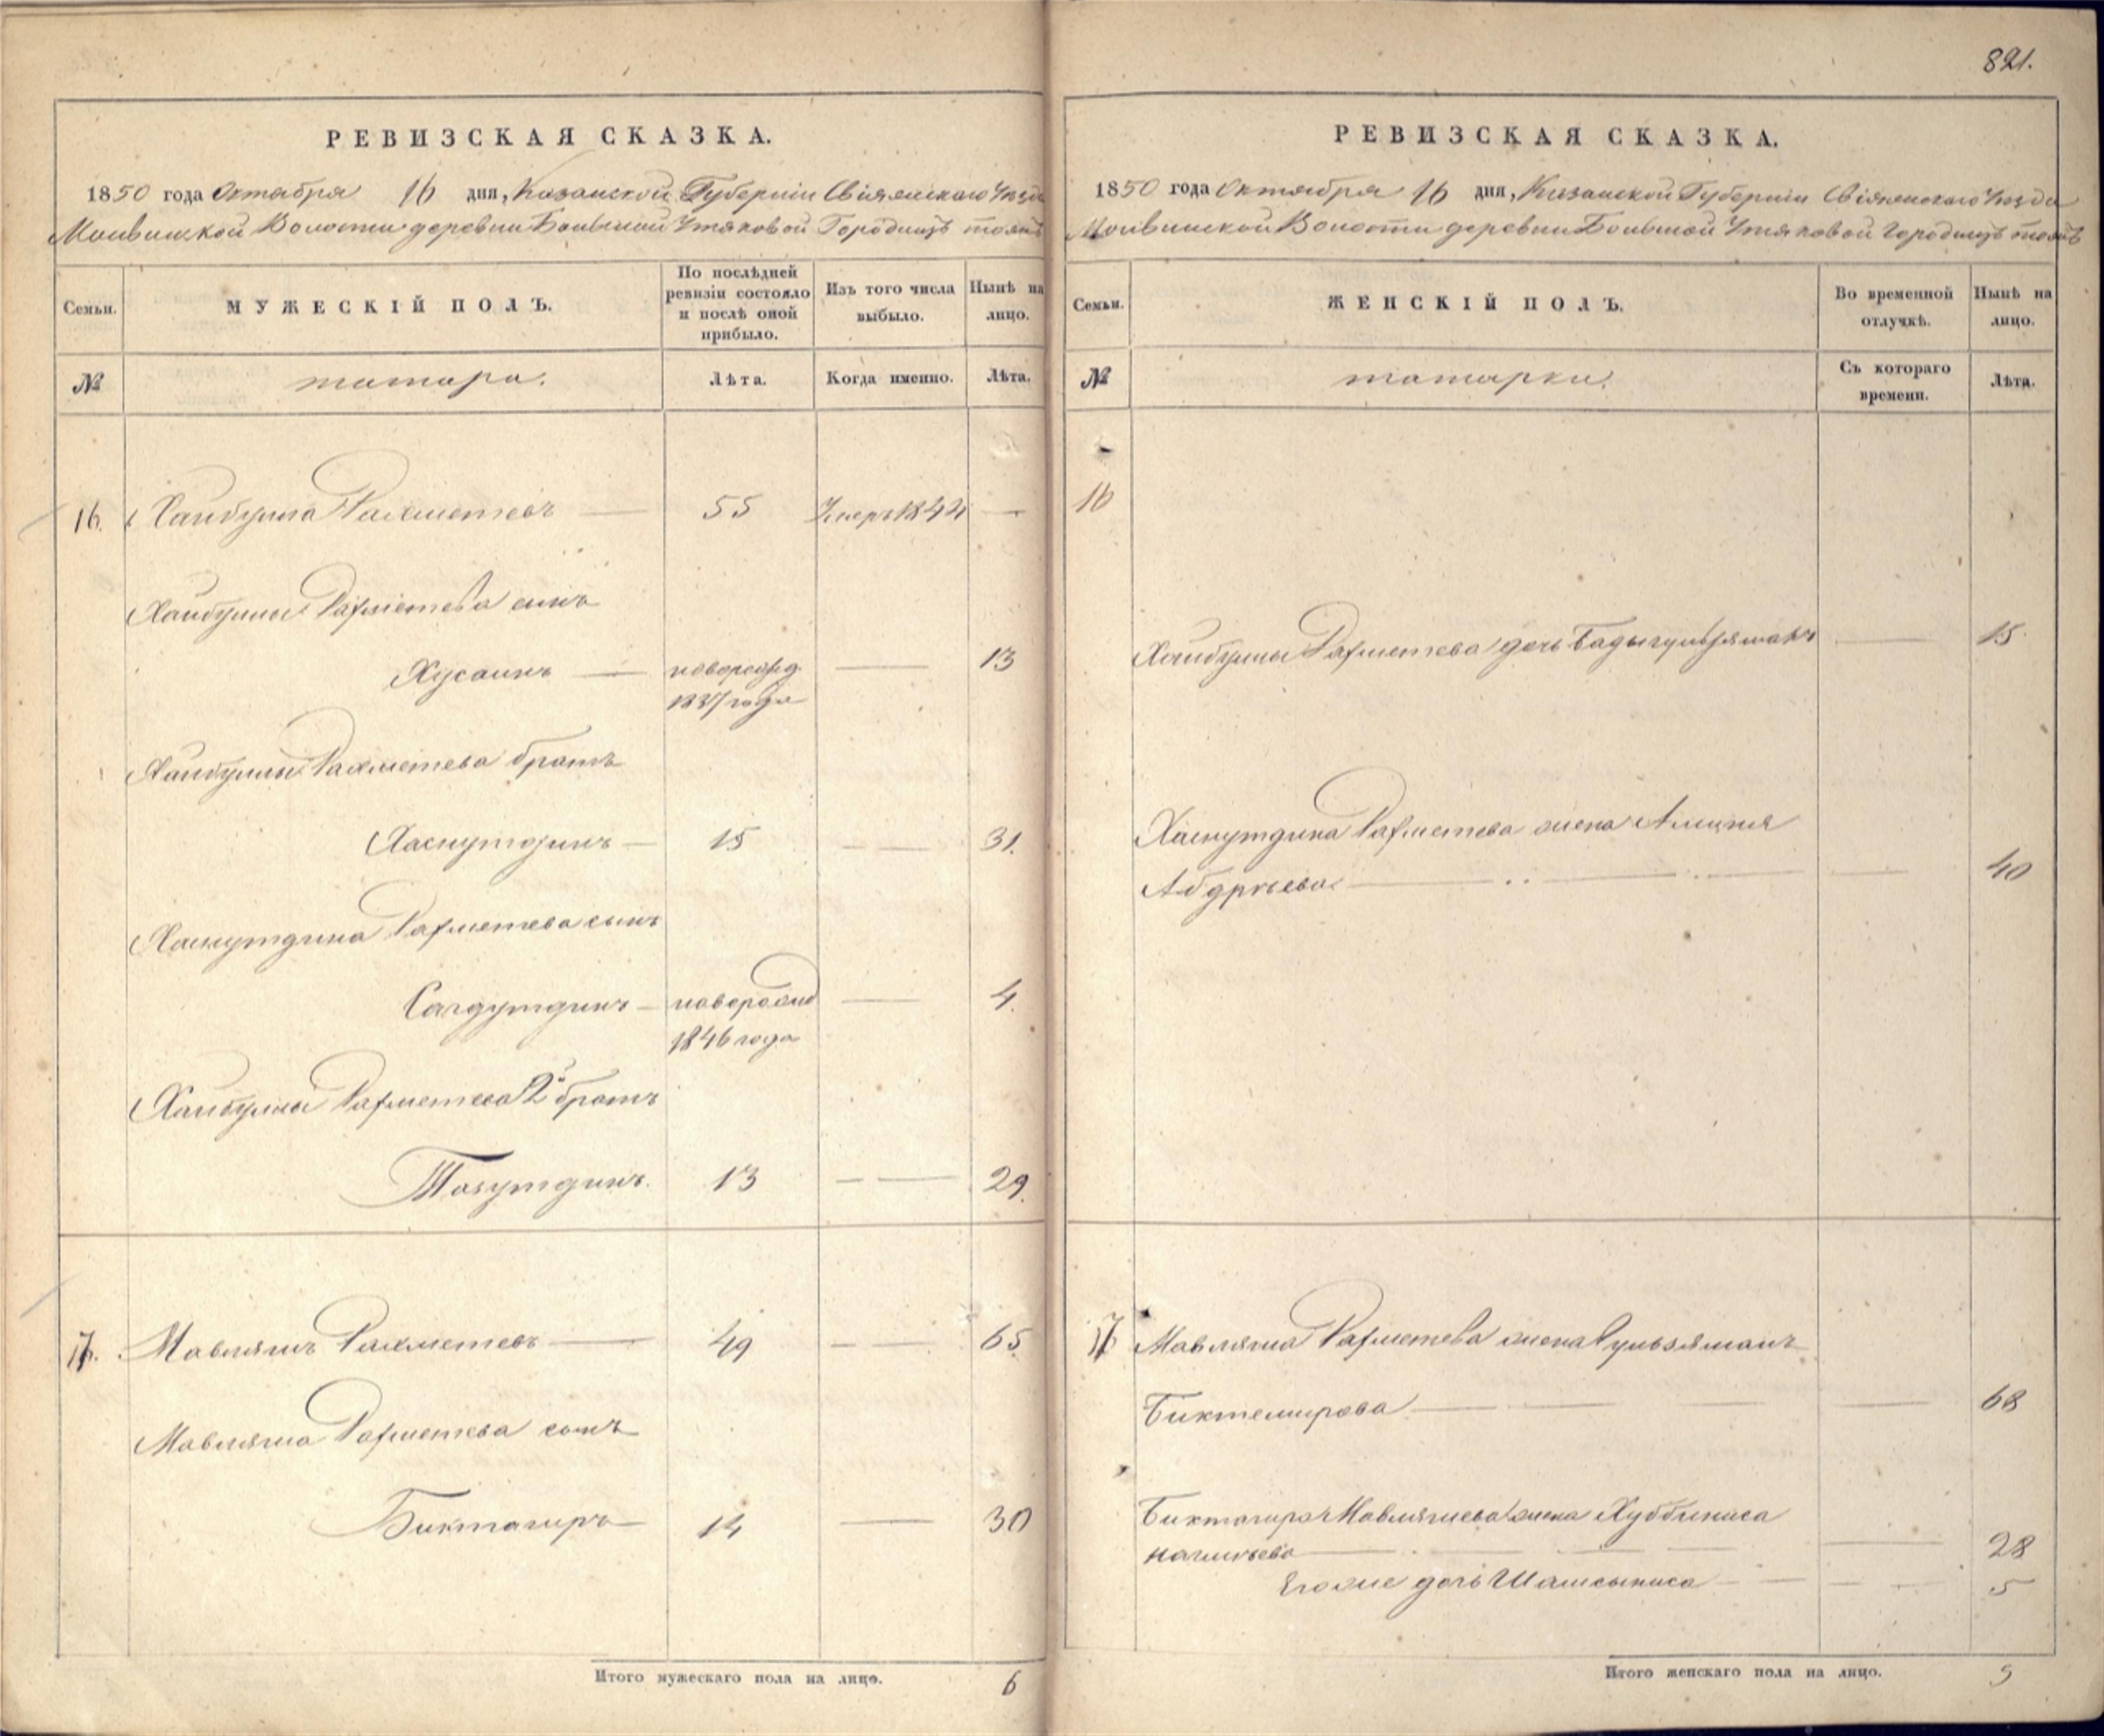 821.
РЕВИЗСКАЯ СКАЗКА.
1850 года Октября 16 дня, Казанской Губерніи Свіяжскаго Уѣзда
Волости деревни Большой Утяковой Городищъ тожъ
Семьи.
МУЖЕСКІЙ ПОЛЪ.
По послѣдней ревизіи состояло и послѣ оной прибыло.
Изъ того числа выбыло.
Нынѣ на лицо.
№
татара.
Лѣта.
Когда именно.
Лѣта.
16. Хаибулла Рахметевъ — 55 Умеръ 1844 —
Хаибуллы Рахметева сынъ
Хусаинъ — новорожд. — 13
1837 года
Хаибуллы Рахметева братъ
Хаснутдинъ — 15 — 31.
Хаснутдина Рахметева сынъ
Сагдутдинъ — новорожд — 4.
1846 года
Хаибуллы Рахметева 2й братъ
Тазутдинъ. 13 — 29.
17. Мавляшъ Рахметевъ — 49 — 65
Мавляша Рахметева сынъ
Биктагиръ — 14 — 30
Итого мужескаго пола на лицо. 6
РЕВИЗСКАЯ СКАЗКА.
1850 года Октября 16 дня, Казанской Губерніи Свіяжскаго Уѣзда
Волости деревни Большой Утяковой Городищъ тожъ
Семьи.
ЖЕНСКІЙ ПОЛЪ.
Во временной отлучкѣ.
Нынѣ на лицо.
№
татарки.
Съ котораго времени.
Лѣта.
16
Хаибуллы Рахметева дочь Бадыгульзяманъ — 15
Хаснутдина Рахметева жена
— 40
17 Мавляша Рахметева жена Гульзяманъ
Биктемирова — 68
Биктагира Мавляшева жена Хуббиниса
— 28
Егоже дочь Шамсыниса — 5
Итого женскаго пола на лицо. 5